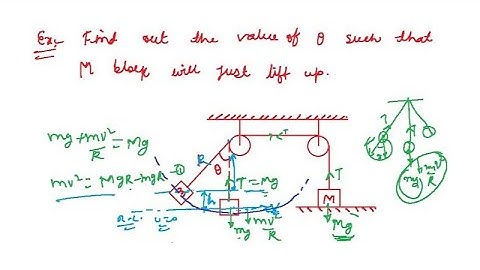 Ex:- Find out the value of θ such that
M block will just lift up.
mg + mv²/R = Mg
mv² = MgR - mgR - ①
R
θ
T
T = Mg
T
h
m
M
mg
mv²/R
Mg
mg
mv²/R